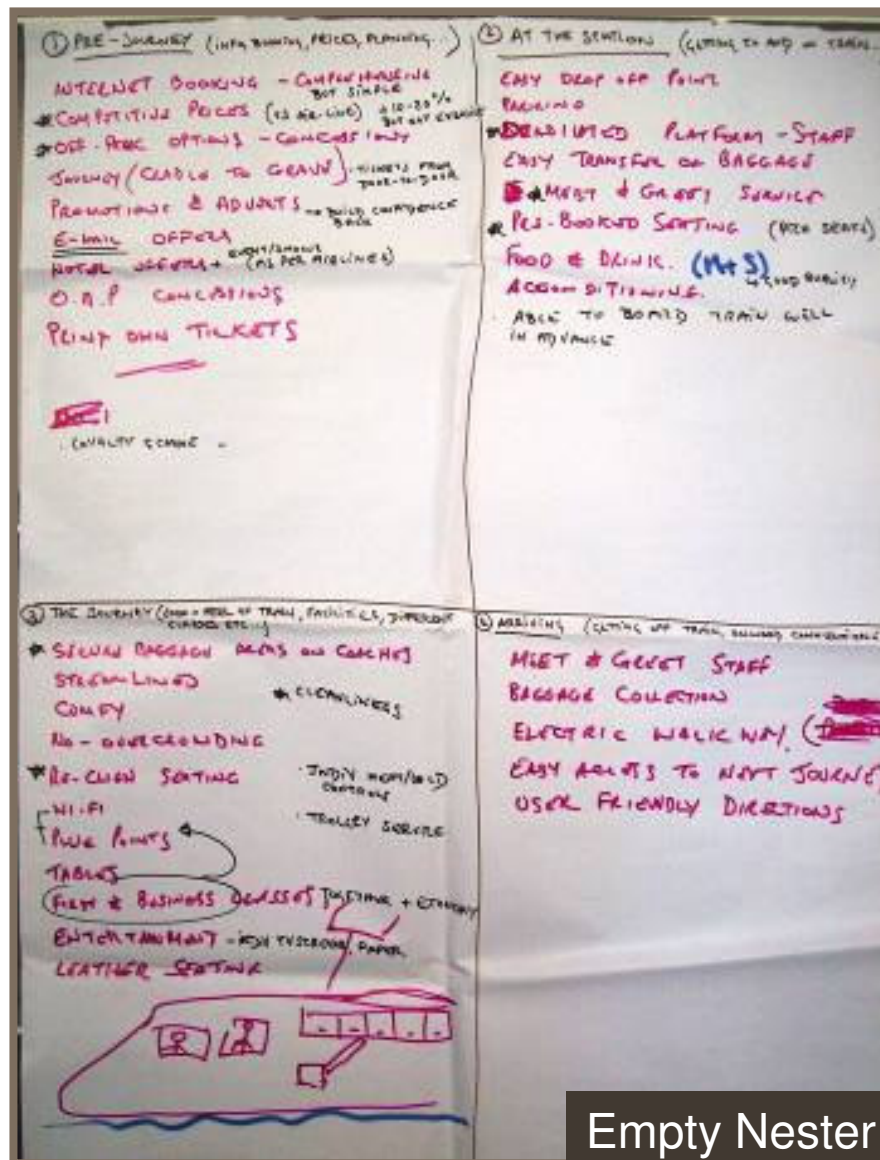 ① PRE-JOURNEY (INFO, BOOKING, PRICES, PLANNING...)
INTERNET BOOKING - COMPREHENSIVE
BUT SIMPLE
* COMPETITIVE PRICES (VS AIR-LINE)
* OFF-PEAK OPTIONS - CONCESSIONS
JOURNEY (CRADLE TO GRAVE) - TICKETS FROM
DOOR-TO-DOOR
PROMOTIONS & ADVERTS - TO BUILD CONFIDENCE
BACK
E-MAIL OFFERS
HOTEL OFFERS + EVENT/SHOWS
(AS PER AIRLINES)
O.A.P CONCESSIONS
PRINT OWN TICKETS
· LOYALTY SCHEME -
② AT THE STATION (GETTING TO AND ON TRAIN...
EASY DROP OFF POINT
PARKING
* DEDICATED PLATFORM - STAFF
EASY TRANSFER OF BAGGAGE
* MEET & GREET SERVICE
* PRE-BOOKED SEATING (SEATS)
FOOD & DRINK. (M+S)
GOOD QUALITY
· ABLE TO BOARD TRAIN WELL
IN ADVANCE
③ THE JOURNEY (LOOK + FEEL OF TRAIN, FACILITIES, DIFFERENT
CLASSES ETC...)
* SECURE BAGGAGE AREAS ON COACHES
STREAMLINED
* CLEANLINESS
COMFY
NO-OVERCROWDING
* RE-CLINE SEATING
· INDIV HEAT/COLD
CONTROLS
WI-FI
· TROLLEY SERVICE
PLUG POINTS
TABLES
FIRST & BUSINESS CLASSES TOGETHER + ECONOMY
ENTERTAINMENT - TVSCREEN, PAPER
LEATHER SEATING
④ ARRIVING (GETTING OFF TRAIN, ONWARD CONNECTIONS
MEET & GREET STAFF
BAGGAGE COLLECTION
ELECTRIC WALKWAY.
EASY ACCESS TO NEXT JOURNEY
USER FRIENDLY DIRECTIONS
Empty Nester